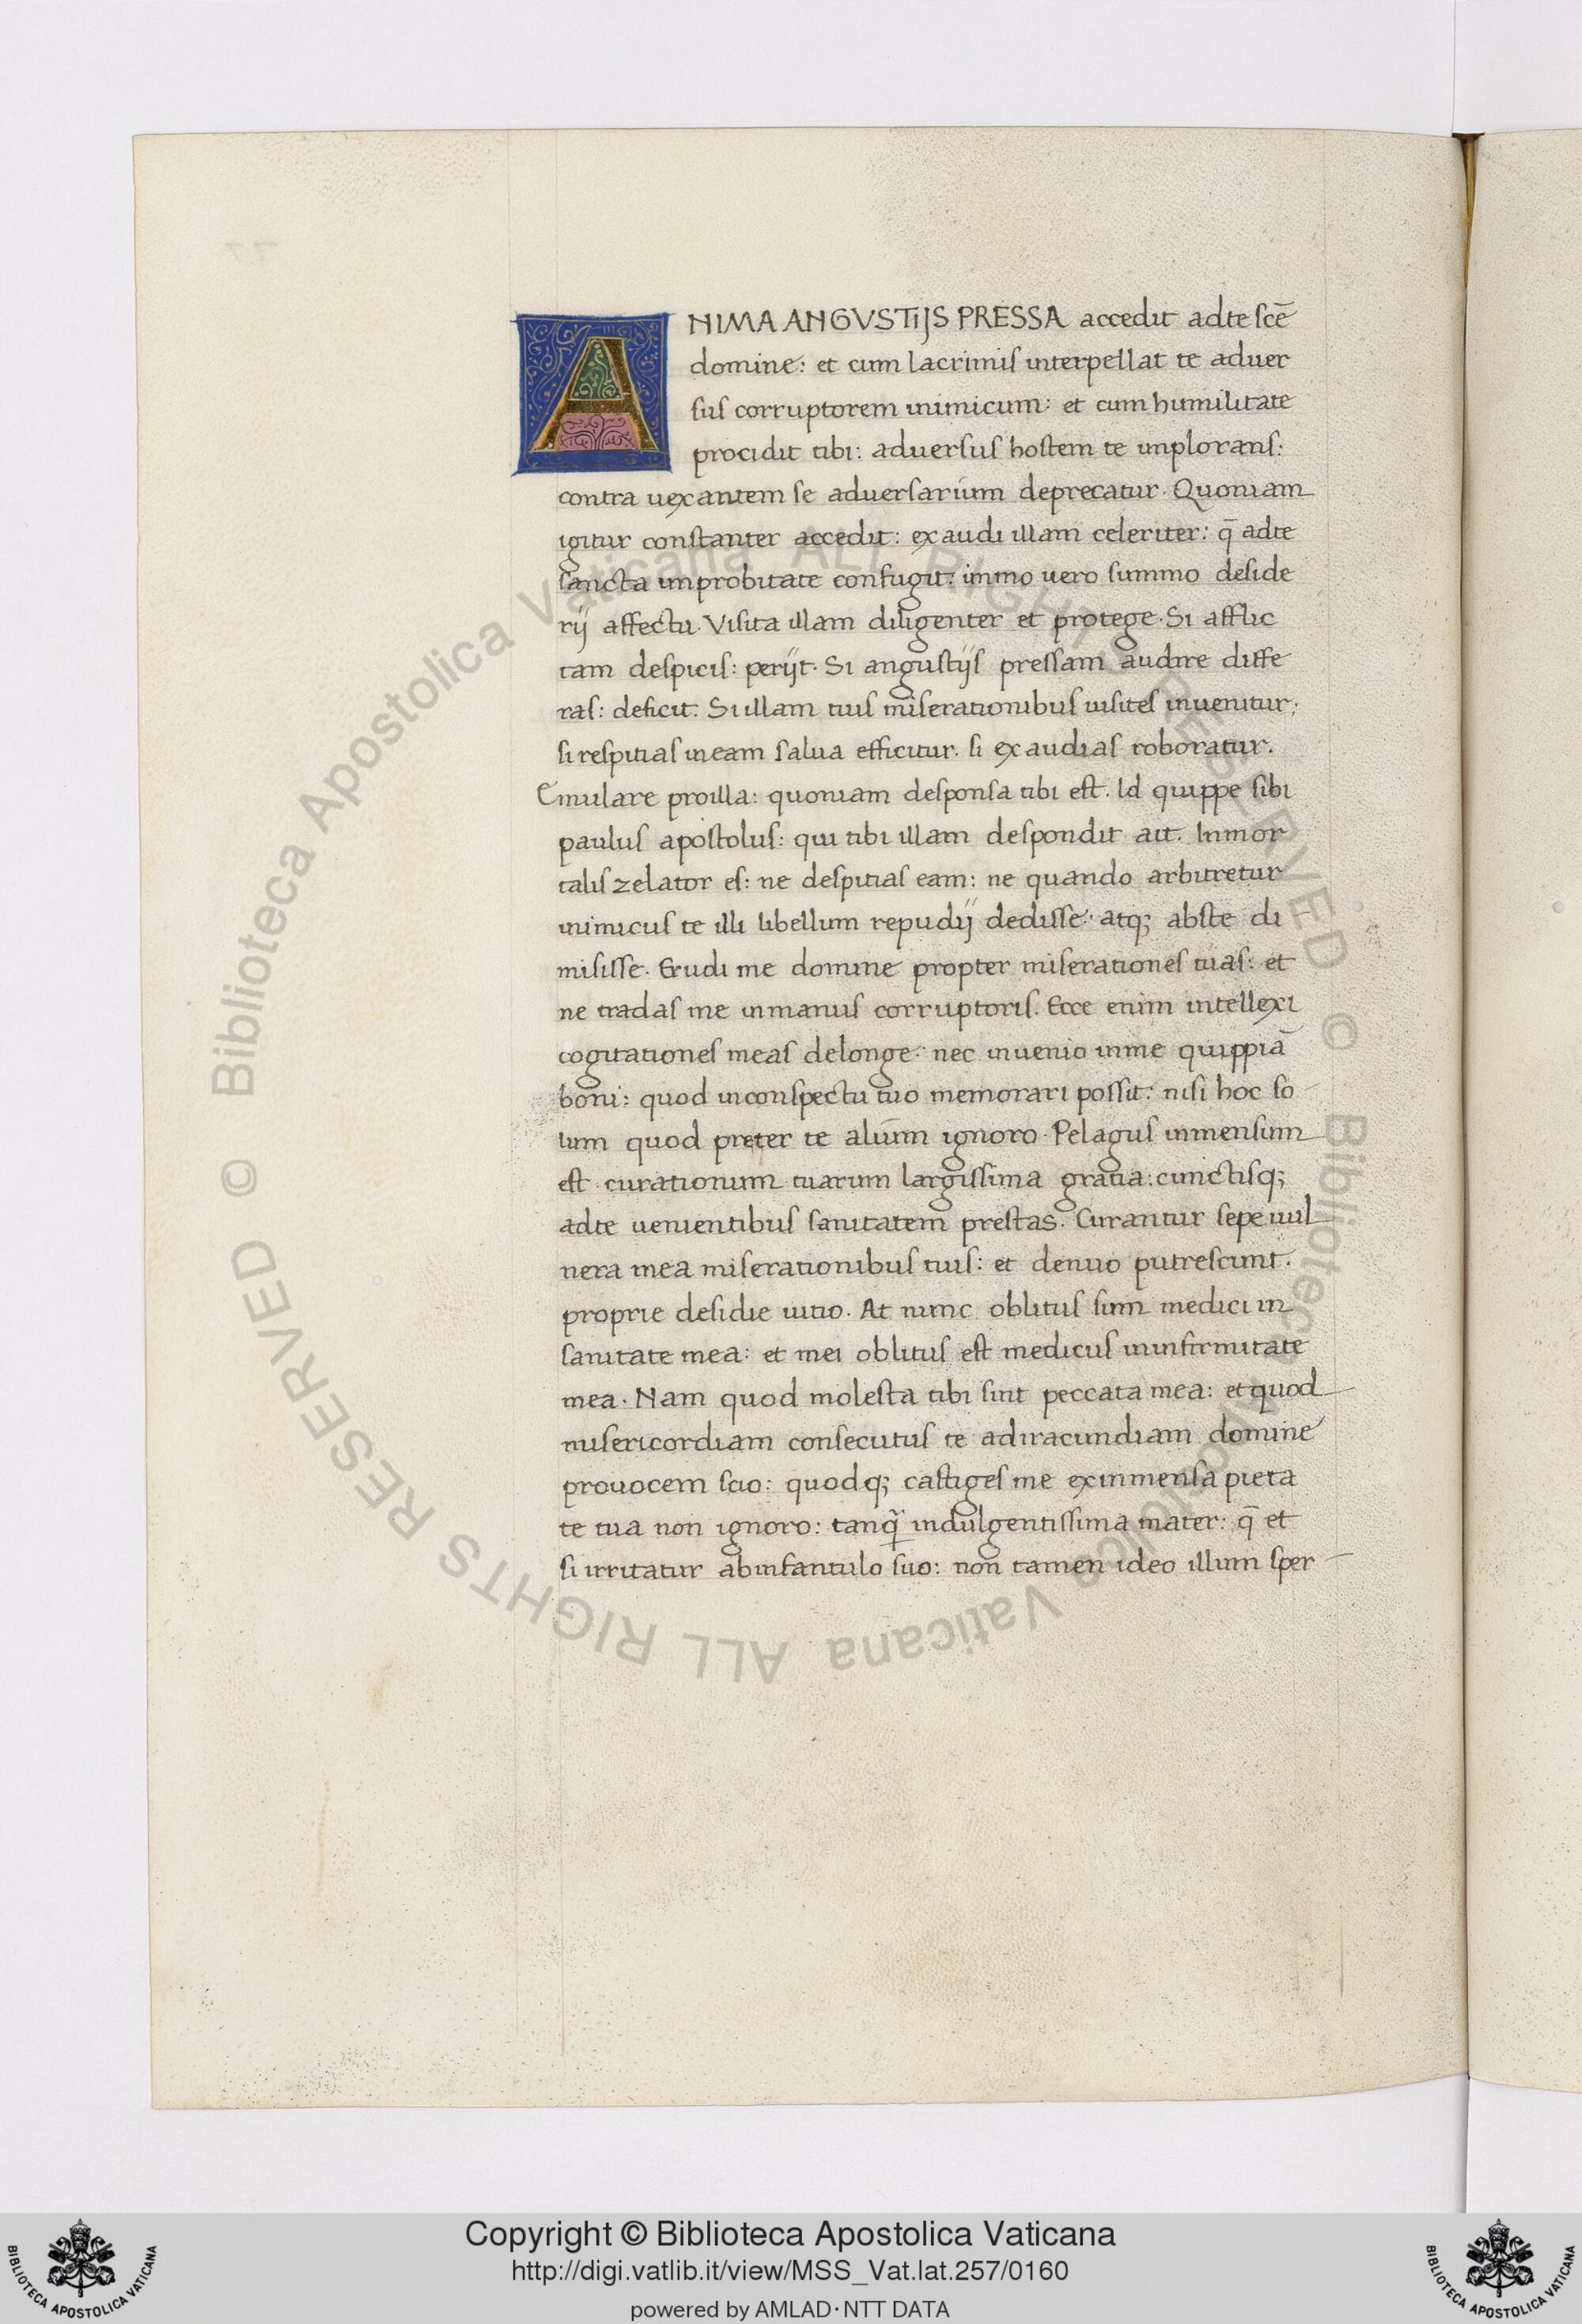 ANIMA ANGVSTIJS PRESSA accedit adte scē
domine: et cum lacrimis interpellat te aduer
sus corruptorem inimicum: et cum humilitate
procidit tibi: aduersus hostem te implorans:
contra uexantem se aduersarium deprecatur. Quoniam
igitur constanter accedit: exaudi illam celeriter: q̄ adte
sancta improbitate confugit: immo uero summo deside
rij affectu. Visita illam diligenter et protege. Si afflic
tam despicis: perijt. Si angustijs pressam audire diffe
ras: deficit. Si illam tuis miserationibus uisites inuenitur:
si respitias ineam salua efficitur. si exaudias roboratur.
Emulare proilla: quoniam desponsa tibi est. Id quippe sibi
paulus apostolus: qui tibi illam despondit ait. Inmor
talis zelator es: ne despitias eam: ne quando arbitretur
inimicus te illi libellum repudij dedisse: atq; abste di
misisse. Erudi me domine propter miserationes tuas: et
ne tradas me inmanus corruptoris. Ecce enim intellexi
cogitationes meas delonge: nec inuenio inme quippiā
boni: quod inconspectu tuo memorari possit: nisi hoc so
lum quod preter te alium ignoro. Pelagus inmensum
est curationum tuarum largissima gratia: cunctisq;
adte uenientibus sanitatem prestas. Curantur sepe uul
nera mea miserationibus tuis: et denuo putrescunt.
proprie desidie uitio. At nunc oblitus sum medici in
sanitate mea: et mei oblitus est medicus ininfirmitate
mea. Nam quod molesta tibi sint peccata mea: et quod
misericordiam consecutus te adiracundiam domine
prouocem scio: quodq; castiges me exinmensa pieta
te tua non ignoro: tanq̄ indulgentissima mater: q̄ et
si irritatur abinfantulo suo: non tamen ideo illum sper
Biblioteca Apostolica Vaticana ALL RIGHTS RESERVED © Biblioteca Apostolica Vaticana ALL RIGHTS RESERVED ©
Copyright © Biblioteca Apostolica Vaticana
http://digi.vatlib.it/view/MSS_Vat.lat.257/0160
powered by AMLAD·NTT DATA
BIBLIOTECA APOSTOLICA VATICANA
BIBLIOTECA APOSTOLICA VATICANA